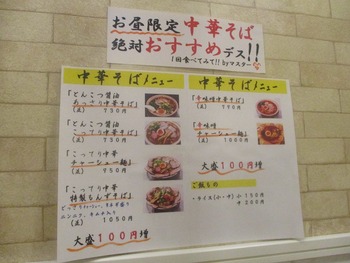 お昼限定 中華そば
絶対おすすめデス!!
1回食べてみて!! byマスター
中華そばメニュー
「とんこつ醤油
あっさり中華そば」
(並) 730円
「とんこつ醤油
こってり中華そば」
(並) 750円
「こってり中華
チャーシュー麺」
(並) 950円
「こってり中華
特製もんずそば」
ニンニク、キムチ入り
(並) 1050円
大盛100円増
中華そばメニュー
「辛味噌中華そば」
(並) 790円
「辛味噌
チャーシュー麺」
(並) 1000円
大盛100円増
ご飯もの
・ライス(小・中) 小150円